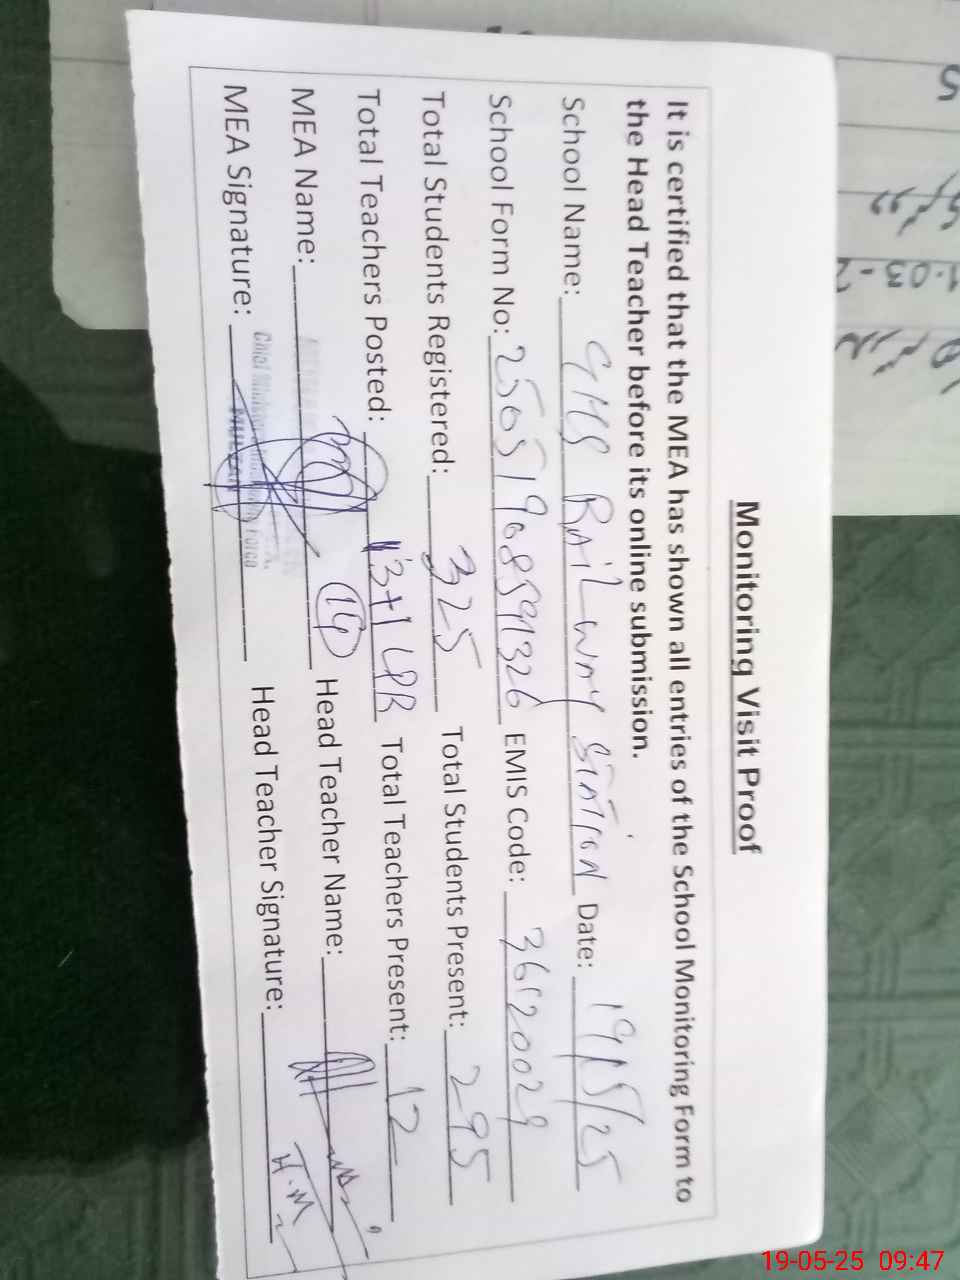 Monitoring Visit Proof
It is certified that the MEA has shown all entries of the School Monitoring Form to
the Head Teacher before its online submission.
School Name: GHS RAILWAY STATION Date: 19/5/25
School Form No: 25051908591326 EMIS Code: 36120029
Total Students Registered: 325 Total Students Present: 295
Total Teachers Posted: 13+1 LPR Total Teachers Present: 12
14
MEA Name: Head Teacher Name:
MEA Signature: Head Teacher Signature: H.M
Chief Minister Monitoring Force
MULTAN
5
19-05-25 09:47